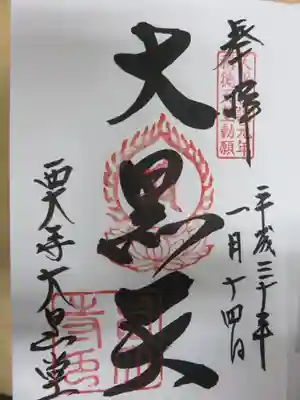 奉拝
平成三十年
一月十四日
大黒天
西大寺大黒堂